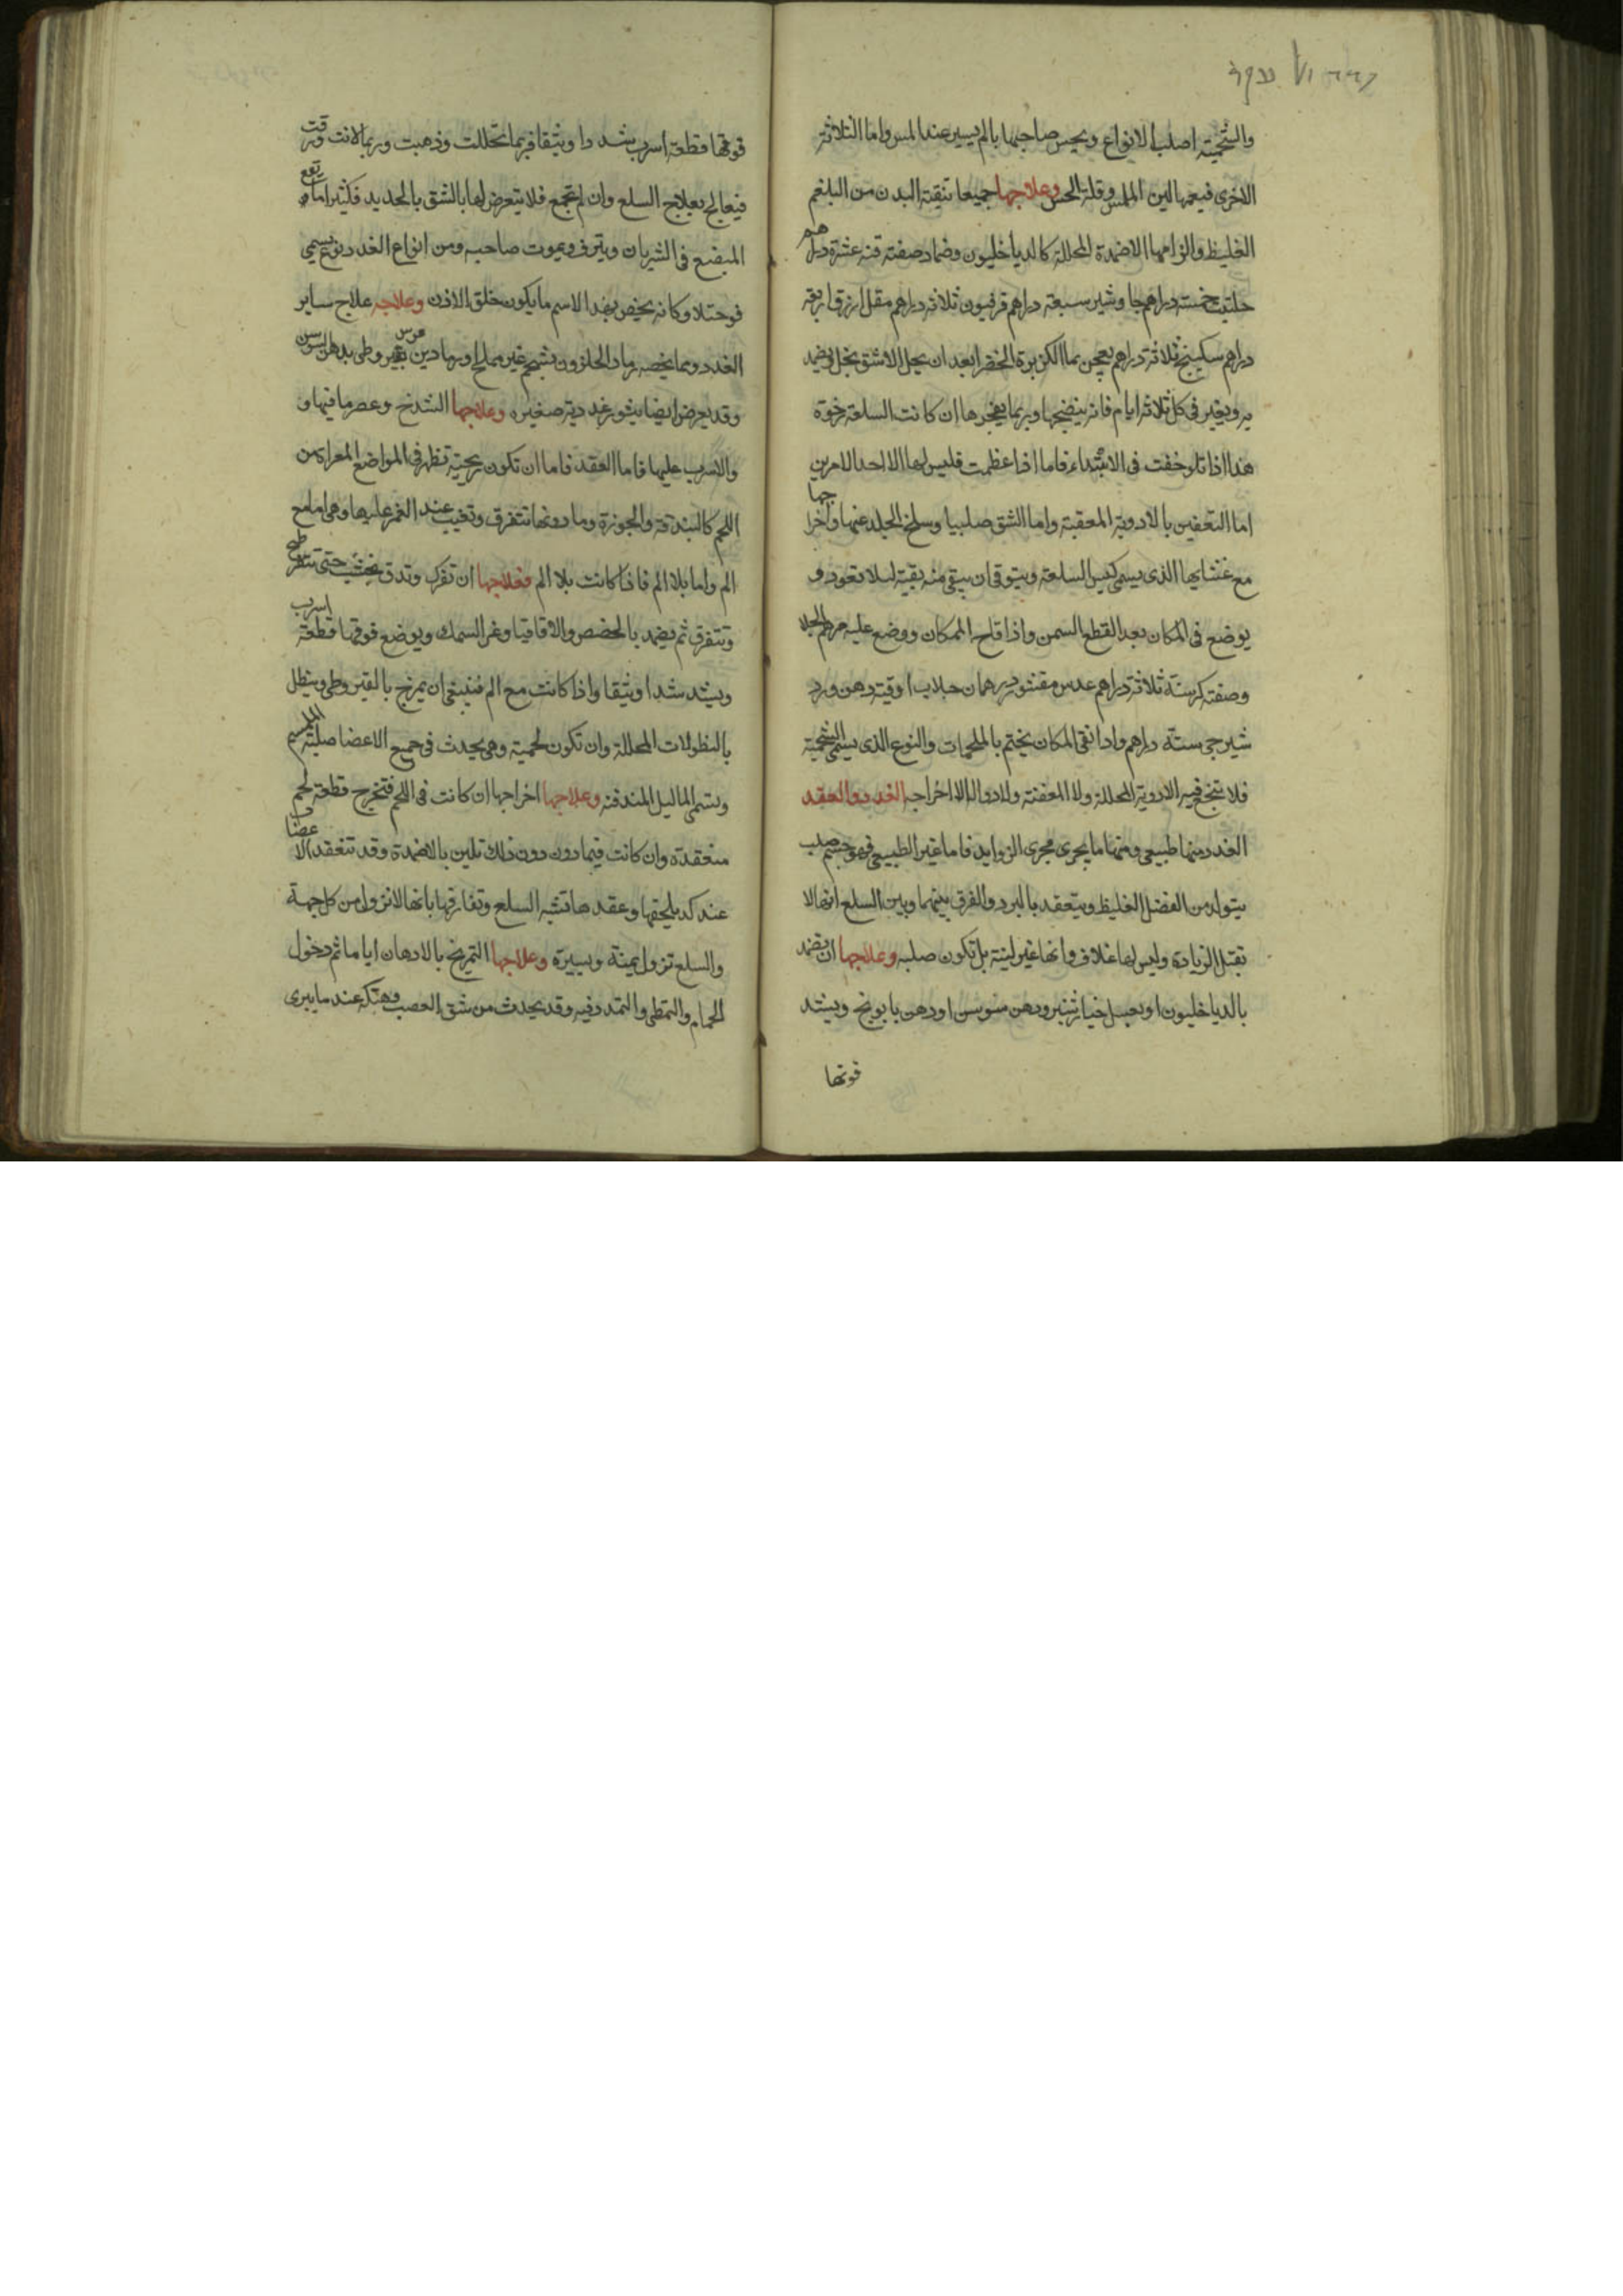 والشحمية اصلب الانواع ويحس صاحبها بالم يسير عند المس واما الثلاثة
الاخرى فيعمها لين الملمس وقلة الحس وعلاجها جميعا تنقية البدن من البلغم
الغليظ والزامها الاضمدة المحللة كالدياخليون وضماد صفته قنه عشرة دراهم
حلتيت خمسة دراهم جاوشير سبعة دراهم فرفيون ثلاثه دراهم مقل ازرق اربعة
دراهم سكبينج ثلاثة دراهم يعجن بما الكزبرة الخضرا بعد ان يحل الاشق بخل ويضمد
به ويغير في كل ثلاثة ايام فانه ينضجها وربما يفجرها ان كانت السلعة رخوة
هذا اذا تلوحفت في الابتداء فاما اذا عظمت فليس لها الا احد الامرين
اما التعفين بالادوية المعفنة واما الشق صليبيا وسلخ الجلد عنها واخراجها
مع غشايها الذي يسمى كيس السلعة ويتوقى ان يبقى منه بقية ليلا تعود و
يوضع في المكان بعد القطع السمن واذا قلح المكان ووضع عليه مرهم الجلا
وصفته كرسنة ثلاثة دراهم عدس مقشور درهمان جلاب اوقية دهن ورد
شيرجي ستة دراهم واذا نقى المكان يختم بالملحمات والنوع الذي يسمى الشحمية
فلا ينجع فيه الادوية المحللة ولا المعفنة ولا دوا لها الا اخراجه الغدد والعقد
الغدد منها طبيعي ومنها ما يجري مجرى الزوايد فاما غير الطبيعي فهو جسم صلب
يتولد من الفضل الغليظ ويتعقد بالبرد والفرق بينهما وبين السلع انها لا
تقبل الزيادة وليس لها غلاف وانها غير لينة بل تكون صلبه وعلاجها ان يضمد
بالدياخليون او بعسل خيار شنبر ودهن سوسن او دهن بابونج ويشد
فوقها
فوقها قطعة اسرب شدا وثيقا فربما تحللت وذهبت وربما لانت ورقت
فيعالج بعلاج السلع وان لم تجمع فلا يتعرض لها بالشق بالحديد فكثيرا ما يقع
المبضع في الشريان وينزف ويموت صاحبه ومن انواع الغدد نوع يسمى
فوحتلا وكانه يخص بهذا الاسم ما يكون خلق الاذن وعلاجه علاج ساير
الغدد ومما يخصه رماد الحلزون بشحم غير مملح او رماد بن عرس بقيروطي بدهن السوسن
وقد يعرض ايضا بثور غددية صغيره وعلاجها الشدخ وعصر ما فيها و
والاسرب عليها فاما العقد فاما ان تكون ريحية تظهر في المواضع المعراة من
اللحم كالبندقة والجوزة وما دونها تتفرق وتغيب عند الغمز عليها وهي اما مع
الم واما بلا الم فاذا كانت بلا الم فعلاجها ان تفرك وتدق بخشب حتى تتفرطح
وتتفرق ثم يضمد بالحضض والاقاقيا وغر السمك ويوضع فوقها قطعة اسرب
ويشد شدا وثيقا واذا كانت مع الم فينبغي ان يمرخ بالقيروطي وينطل
بالنطولات المحللة وان تكون لحمية وهي يحدث في جميع الاعضا صلبة الملمس
وتسمى الماليل المندفنه وعلاجها اخراجها ان كانت في اللحم فتخرج قطعة لحم
منعقدة وان كانت فيما دون ذلك تلين بالاضمدة وقد تنعقد الاعضا
عند كد يلحقها وعقدها تشبه السلع وتفارقها بانها لا تزول من كل جهة
والسلع تزول يمنة ويسيرة وعلاجها التمريخ بالادهان اياما ثم دخول
الحمام والتمطي والتمدد فيه وقد يحدث من شق العصب وهتكه عند ما يبرى